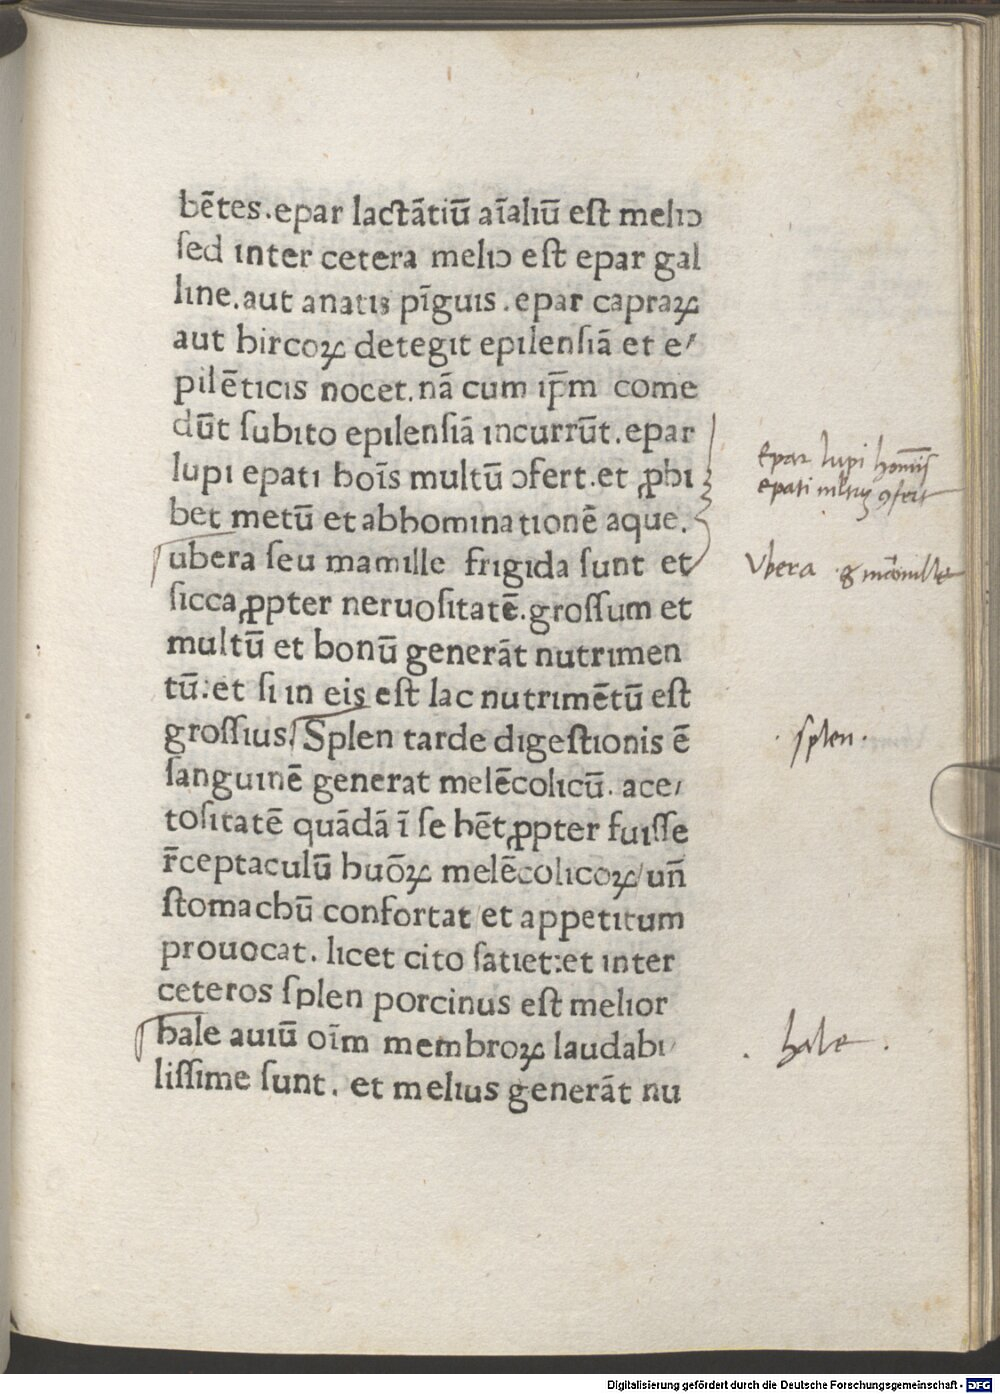 bētes.epar lactātiū aīaliū est melioↄ
sed inter cetera melioↄ est epar gal
line.aut anatis pīguis.epar capraꝝ
aut bircoꝝ detegit epilensiā et e/
pilēticis nocet.nā cum ip̄m come
dūt subito epilensiā incurrūt.epar
lupi epati boīs multū ↄfert.et ꝓbi
bet metū et abbominationē aque.
ubera seu mamille frigida sunt et
sicca ꝓpter neruositatē.grossum et
multū et bonū generāt nutrimen
tū:et si in eis est lac nutrimētū est
grossius/Splen tarde digestionis ē
sanguinē generat melēcolicū. ace/
tositatē quādā ī se bēt ꝓpter fuisse
r̄ceptaculū buōꝝ melēcolicoꝝ/un̄
stomacbū confortat/et appetitum
prouocat. licet cito satiet:et inter
ceteros splen porcinus est melior
bale auiū oīm membroꝝ laudabi/
lissime sunt. et melius generāt nu
epar lupi homīs
epati ↄfert
Vbera & mamille
· splen ·
. hale .
Digitalisierung gefördert durch die Deutsche Forschungsgemeinschaft - DFG